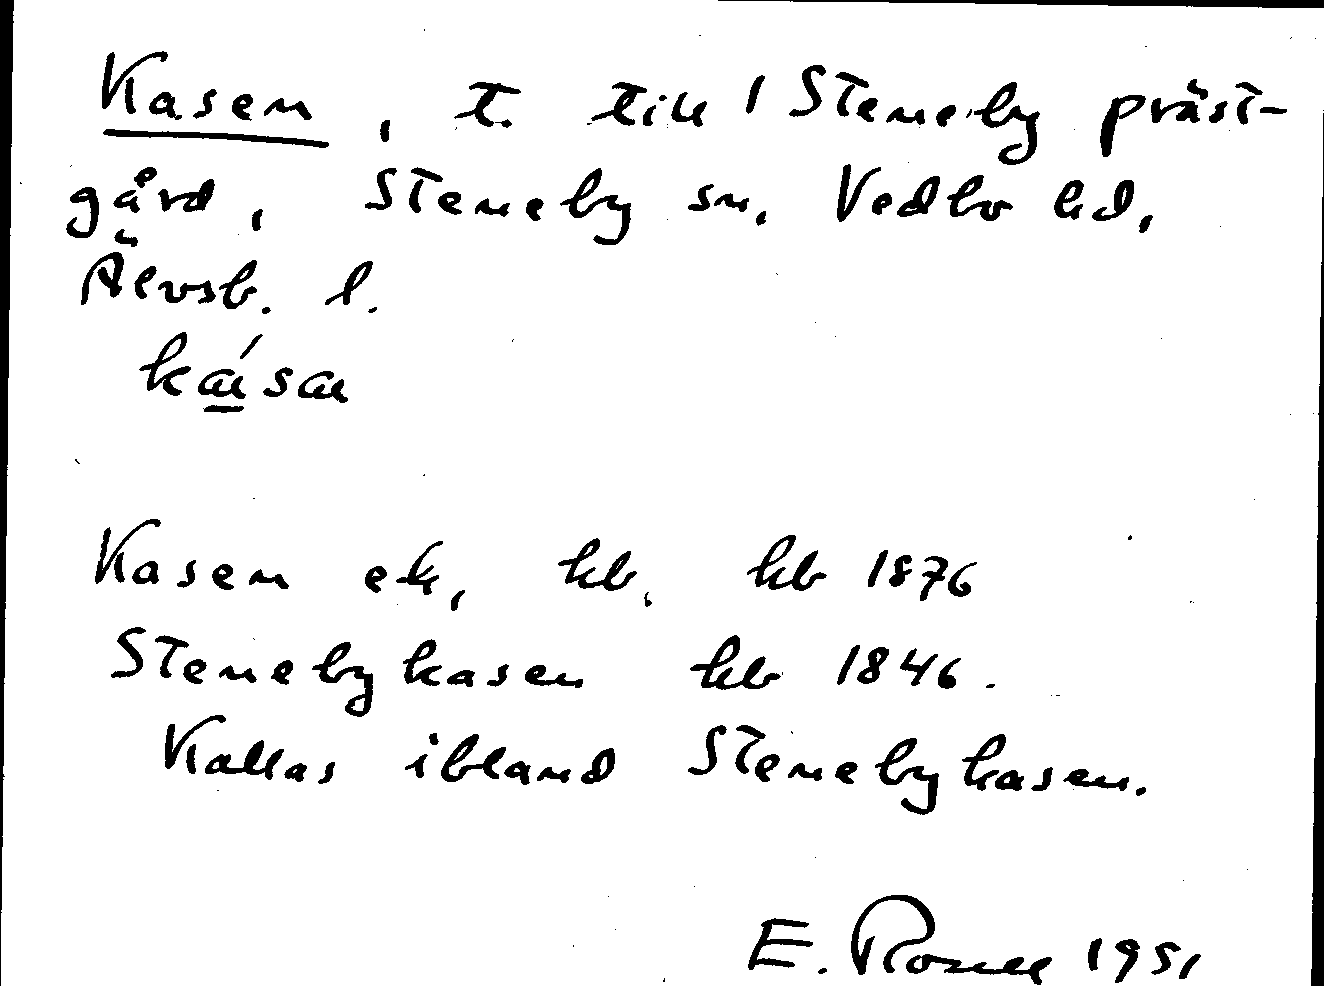 Kasen, t. till 1 Steneby präst-
gård, Steneby sn, Vedbo hd,
Älvsb. l.
Kasen ek, hb. hb 1876
Stenebykasen hb 1846.
Kallas ibland Stenebykasen.
E. Rosell 1951